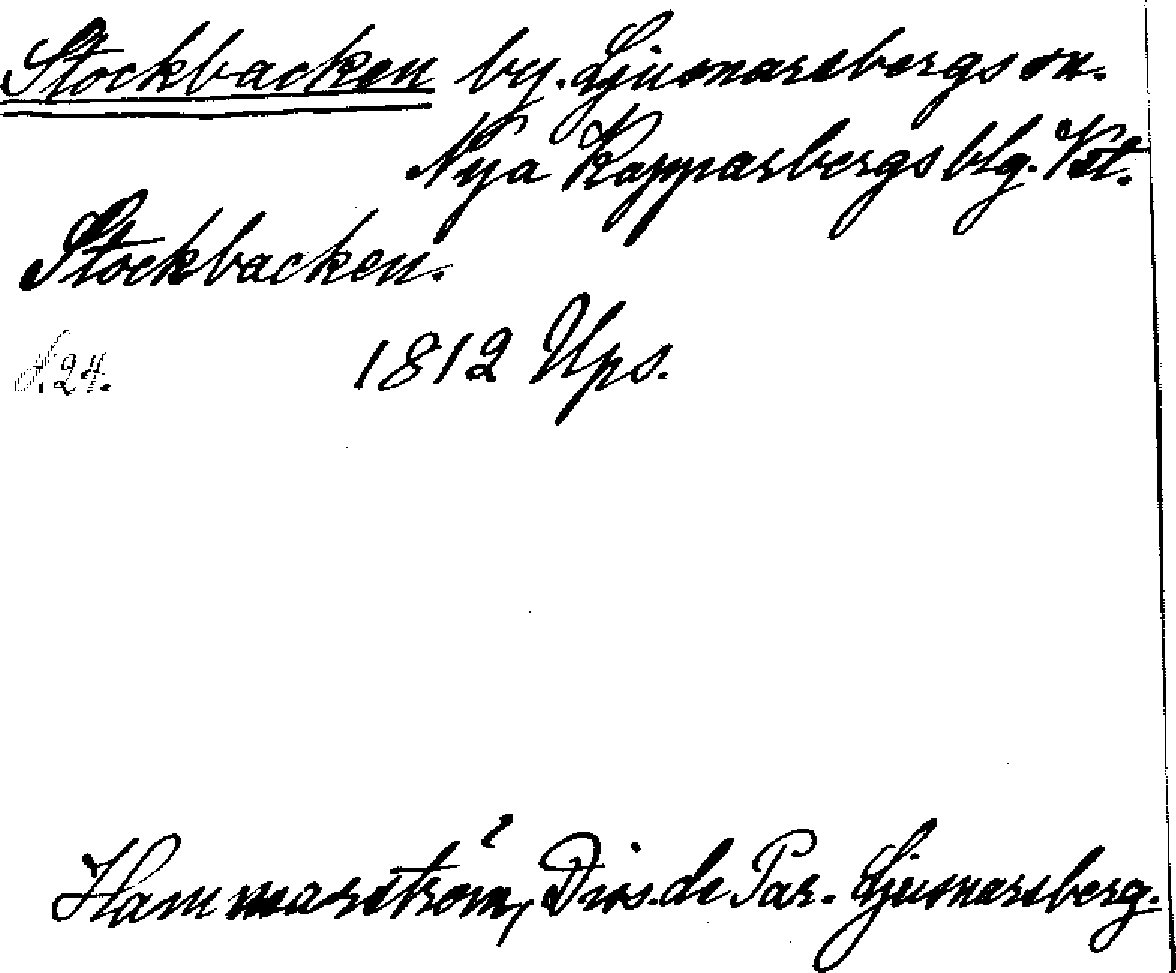 Stockbacken by. Ljusnarsbergs sn.
Nya Kopparbergs blg. Vstl.
Stockbacken.
s. 24. 1812 Ups.
Hammarström, Diss. de Par. Ljusnarsberg.